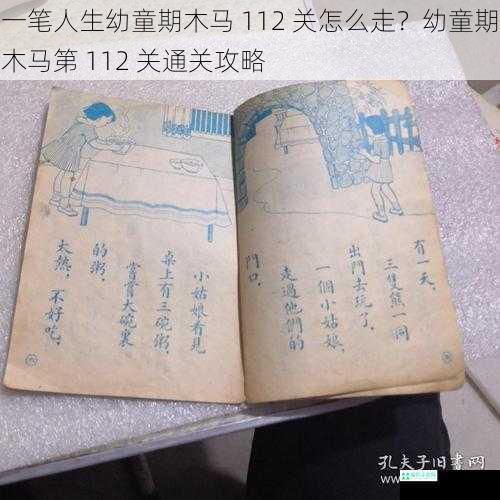 一笔人生幼童期木马 112 关怎么走？幼童期
木马第 112 关通关攻略
有一天，
三隻熊一同
出門去玩了。
一個小姑娘
走過他們的
門口。
小姑娘看見
桌上有三碗粥，
嘗嘗大碗裏
的粥，
太熱，不好吃。
孔夫子旧書网